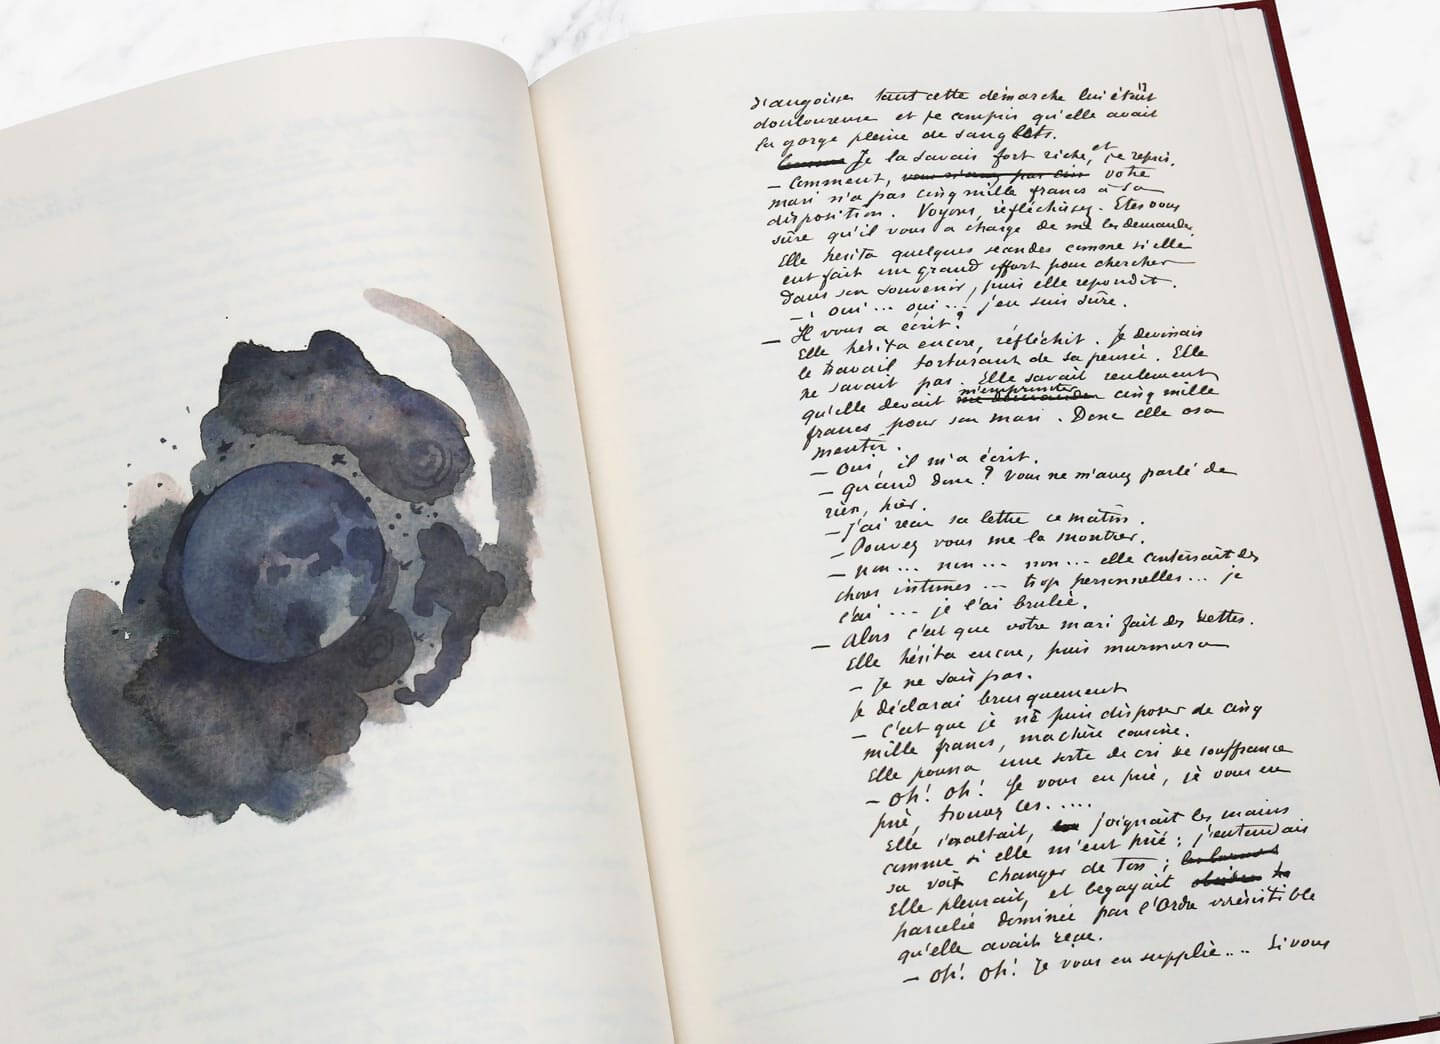 17
d'angoisse tant cette démarche lui était
douloureuse et je compris qu'elle avait
la gorge pleine de sanglots.
Je la savais fort riche, et je repris.
— Comment, vous n'avez pas cinq votre
mari n'a pas cinq mille francs à sa
disposition. Voyons, réfléchissez. Etes vous
sûre qu'il vous a chargé de me les demander.
Elle hésita quelques secondes comme si elle
eut fait un grand effort pour chercher
dans son souvenir, puis elle répondit.
— oui... oui... j'en suis sûre.
— Il vous a écrit?
Elle hésita encore, réfléchit. Je devinais
le travail torturant de sa pensée. Elle
ne savait pas. Elle savait seulement
qu'elle devait m'emprunter me demander cinq mille
francs pour son mari. Donc elle osa
mentir.
— Oui, il m'a écrit.
— Quand donc? Vous ne m'avez parlé de
rien, hier.
— j'ai reçu sa lettre ce matin.
— Pouvez vous me la montrer.
— non... non... non... elle contenait des
choses intimes... trop personnelles... je
l'ai... je l'ai brulée.
— Alors c'est que votre mari fait des dettes.
Elle hésita encore, puis murmura
— Je ne sais pas.
Je déclarai brusquement
— C'est que je ne puis disposer de cinq
mille francs, ma chère cousine.
Elle poussa une sorte de cri de souffrance
— Oh! Oh! Je vous en prie, je vous en
prie, trouvez les.....
Elle s'exaltait, joignait les mains
comme si elle m'eut prié; j'entendais
sa voix changer de ton;
Elle pleurait, et begayait
harcelée dominée par l'ordre irrésistible
qu'elle avait reçu.
— Oh! Oh! Je vous en supplie.... Si vous